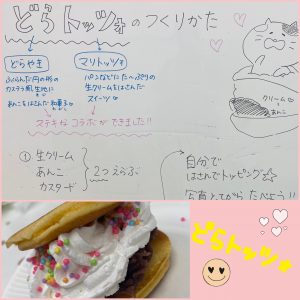 どらトッツォのつくりかた
どらやき
マリトッツォ
ふくらんだ円の形の
カステラ風生地に
あんをはさんだ和菓子
パンなどにたっぷりの
生クリームをはさんだ
スイーツ
クリーム
あんこ
ステキなコラボができました!!
① 生クリーム
あんこ
カスタード
2つえらぶ
自分で
はさんでトッピング☆
写真とってからたべよう!!
どらトッツォ